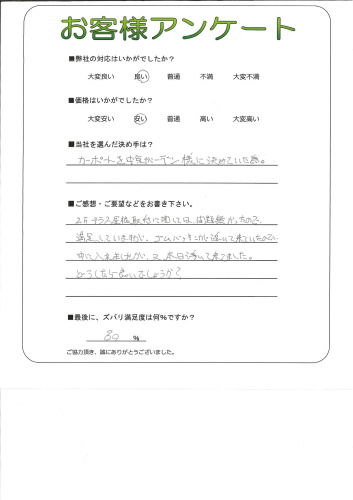 お客様アンケート
■弊社の対応はいかがでしたか？
大変良い 良い 普通 不満 大変不満
■価格はいかがでしたか？
大変安い 安い 普通 高い 大変高い
■当社を選んだ決め手は？
カーポートを 様に決めていた為。
■ご感想・ご要望などをお書き下さい。
2Fテラス屋根取付に関しては、問題無かったので、
満足していますが、ゴムパッキンが浮いて来ていたので
中に入れましたが、又、本日浮いて来てました。
どうしたら良いでしょうか？
■最後に、ズバリ満足度は何%ですか？
80 %
ご協力頂き、誠にありがとうございました。